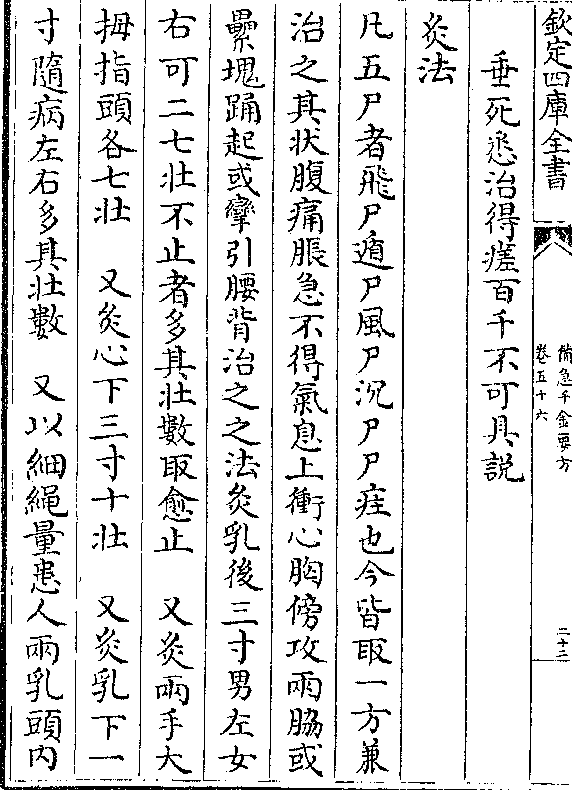 欽定四庫全書
備急千金要方
卷五十六
二十三
垂死悉治得瘥百千不可具説
灸法
凡五尸者飛尸遁尸風尸沉尸尸疰也今皆取一方兼
治之其状腹痛脹急不得氣息上衝心胸傍攻兩脇或
纍塊踊起或攣引腰背治之之法灸乳後三寸男左女
右可二七壮不止者多其壮數取愈止　又灸兩手大
拇指頭各七壮　又灸心下三寸十壮　又灸乳下一
寸隨病左右多其壮數　又以細繩量患人兩乳頭内